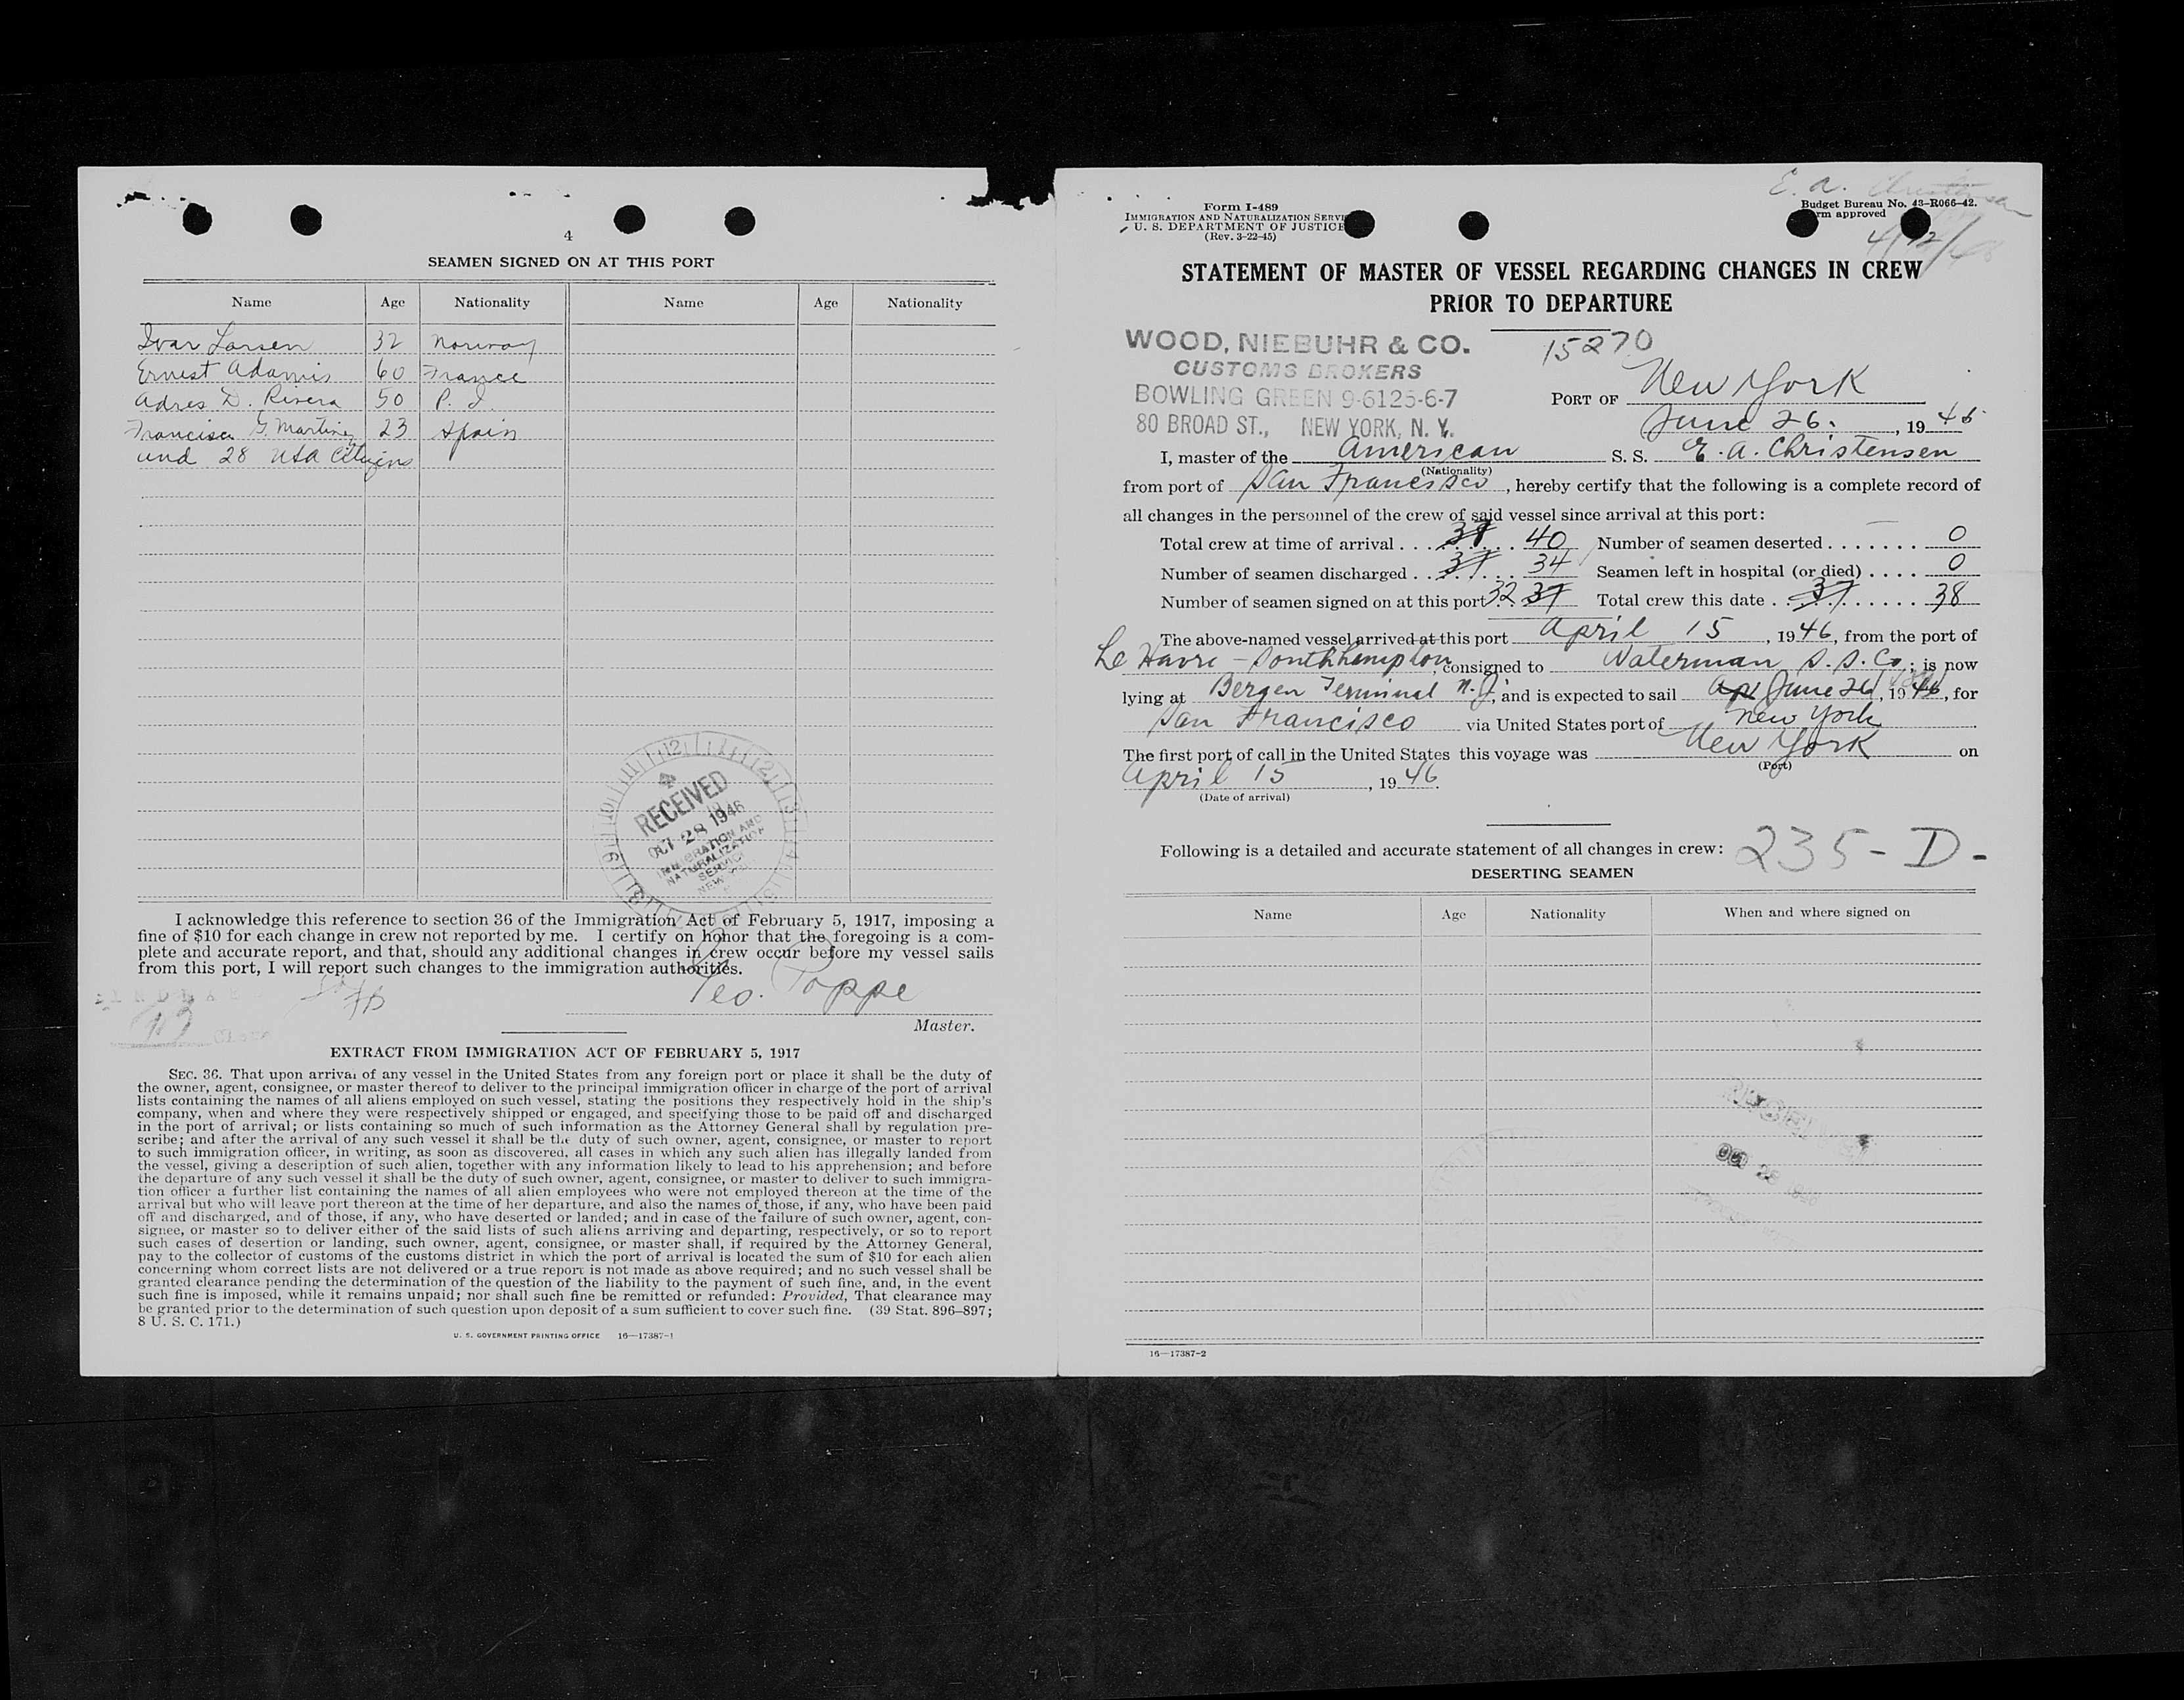 4
SEAMEN SIGNED ON AT THIS PORT
Name Age Nationality Name Age Nationality
Ivar Larsen 32 Norway
Ernest Adamis 60 France
Adres D. Rivera 50 P. I.
Francisco G. Martinez 23 Spain
and 28 USA Citizens
RECEIVED
OCT 28 1946
IMMIGRATION AND
NATURALIZATION
SERVICE
NEW
I acknowledge this reference to section 36 of the Immigration Act of February 5, 1917, imposing a
fine of $10 for each change in crew not reported by me. I certify on honor that the foregoing is a com-
plete and accurate report, and that, should any additional changes in crew occur before my vessel sails
from this port, I will report such changes to the immigration authorities.
Geo. Poppe
Master.
EXTRACT FROM IMMIGRATION ACT OF FEBRUARY 5, 1917
SEC. 36. That upon arrival of any vessel in the United States from any foreign port or place it shall be the duty of
the owner, agent, consignee, or master thereof to deliver to the principal immigration officer in charge of the port of arrival
lists containing the names of all aliens employed on such vessel, stating the positions they respectively hold in the ship's
company, when and where they were respectively shipped or engaged, and specifying those to be paid off and discharged
in the port of arrival; or lists containing so much of such information as the Attorney General shall by regulation pre-
scribe; and after the arrival of any such vessel it shall be the duty of such owner, agent, consignee, or master to report
to such immigration officer, in writing, as soon as discovered, all cases in which any such alien has illegally landed from
the vessel, giving a description of such alien, together with any information likely to lead to his apprehension; and before
the departure of any such vessel it shall be the duty of such owner, agent, consignee, or master to deliver to such immigra-
tion officer a further list containing the names of all alien employees who were not employed thereon at the time of the
arrival but who will leave port thereon at the time of her departure, and also the names of those, if any, who have been paid
off and discharged, and of those, if any, who have deserted or landed; and in case of the failure of such owner, agent, con-
signee, or master so to deliver either of the said lists of such aliens arriving and departing, respectively, or so to report
such cases of desertion or landing, such owner, agent, consignee, or master shall, if required by the Attorney General,
pay to the collector of customs of the customs district in which the port of arrival is located the sum of $10 for each alien
concerning whom correct lists are not delivered or a true report is not made as above required; and no such vessel shall be
granted clearance pending the determination of the question of the liability to the payment of such fine, and, in the event
such fine is imposed, while it remains unpaid; nor shall such fine be remitted or refunded: Provided, That clearance may
be granted prior to the determination of such question upon deposit of a sum sufficient to cover such fine. (39 Stat. 896–897;
8 U. S. C. 171.)
U. S. GOVERNMENT PRINTING OFFICE 16—17387-1
E. A. Christensen
Form I-489
IMMIGRATION AND NATURALIZATION SERVI
U. S. DEPARTMENT OF JUSTICE
(Rev. 3-22-45)
Budget Bureau No. 43-R066-42.
rm approved
STATEMENT OF MASTER OF VESSEL REGARDING CHANGES IN CREW
PRIOR TO DEPARTURE
WOOD, NIEBUHR & CO.
CUSTOMS BROKERS
BOWLING GREEN 9-6125-6-7
80 BROAD ST., NEW YORK, N. Y.
15270
PORT OF New York
June 26, 1946
I, master of the American S. S. E. A. Christensen
(Nationality)
from port of San Francisco, hereby certify that the following is a complete record of
all changes in the personnel of the crew of said vessel since arrival at this port:
Total crew at time of arrival . . . 40 Number of seamen deserted . . . . . . . 0
Number of seamen discharged . . 37 34 Seamen left in hospital (or died) . . . . 0
Number of seamen signed on at this port 32 37 Total crew this date . . 37 . . . . . . 38
The above-named vessel arrived at this port April 15, 1946, from the port of
Le Havre - Southhempton, consigned to Waterman S. S. Co.; is now
lying at Bergen Terminal N. J., and is expected to sail Apr June 26, 1946, for
San Francisco via United States port of New York
The first port of call in the United States this voyage was New York on
(Port)
April 15, 1946.
(Date of arrival)
Following is a detailed and accurate statement of all changes in crew: 235-D-
DESERTING SEAMEN
Name Age Nationality When and where signed on
16—17387-2